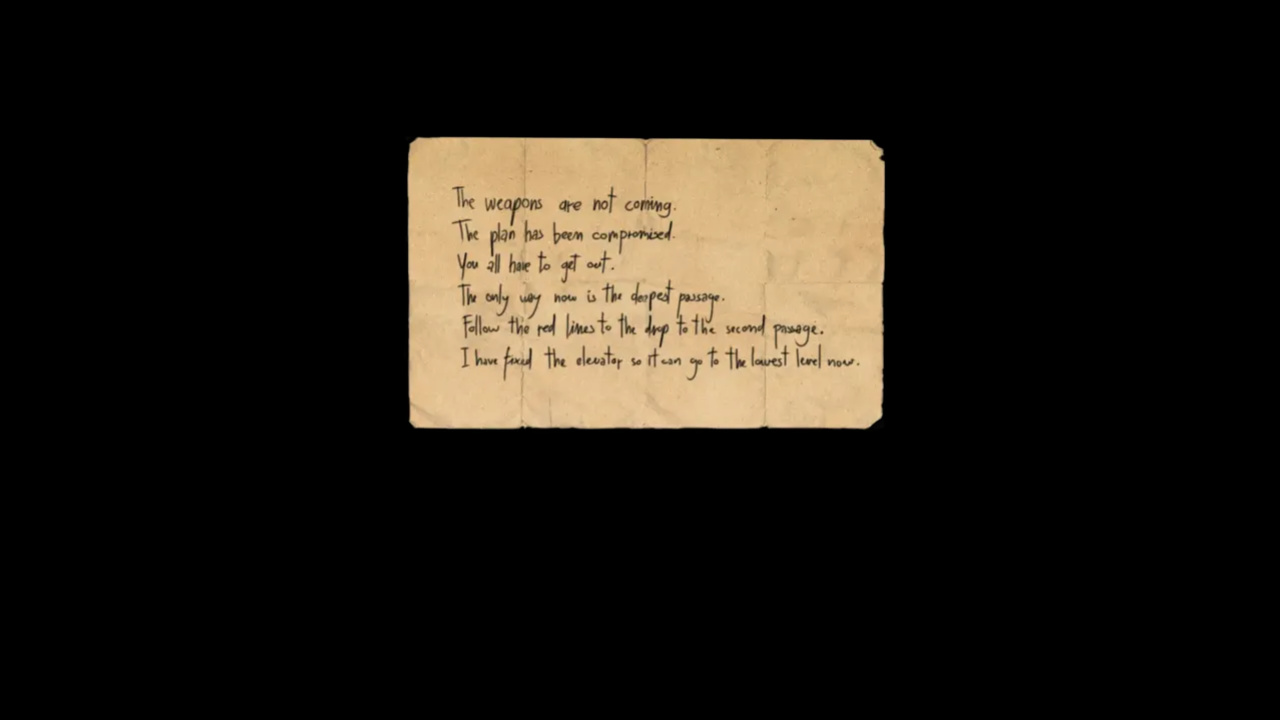 The weapons are not coming.
The plan has been compromised.
You all have to get out.
The only way now is the deepest passage.
Follow the red lines to the drop to the second passage.
I have fixed the elevator so it can go to the lowest level now.